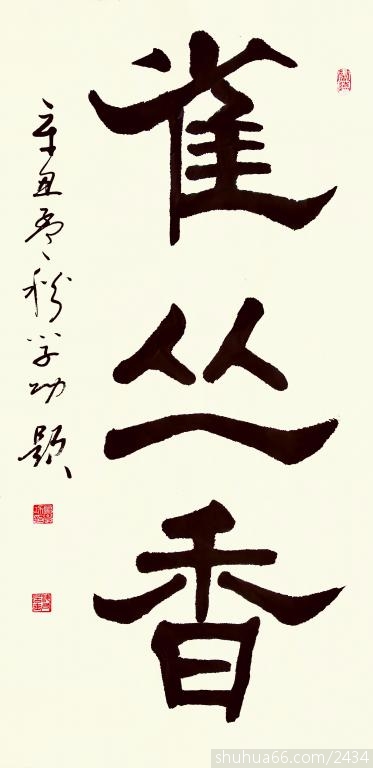 雀丛香
辛丑 学功题
shuhua66.com/2434